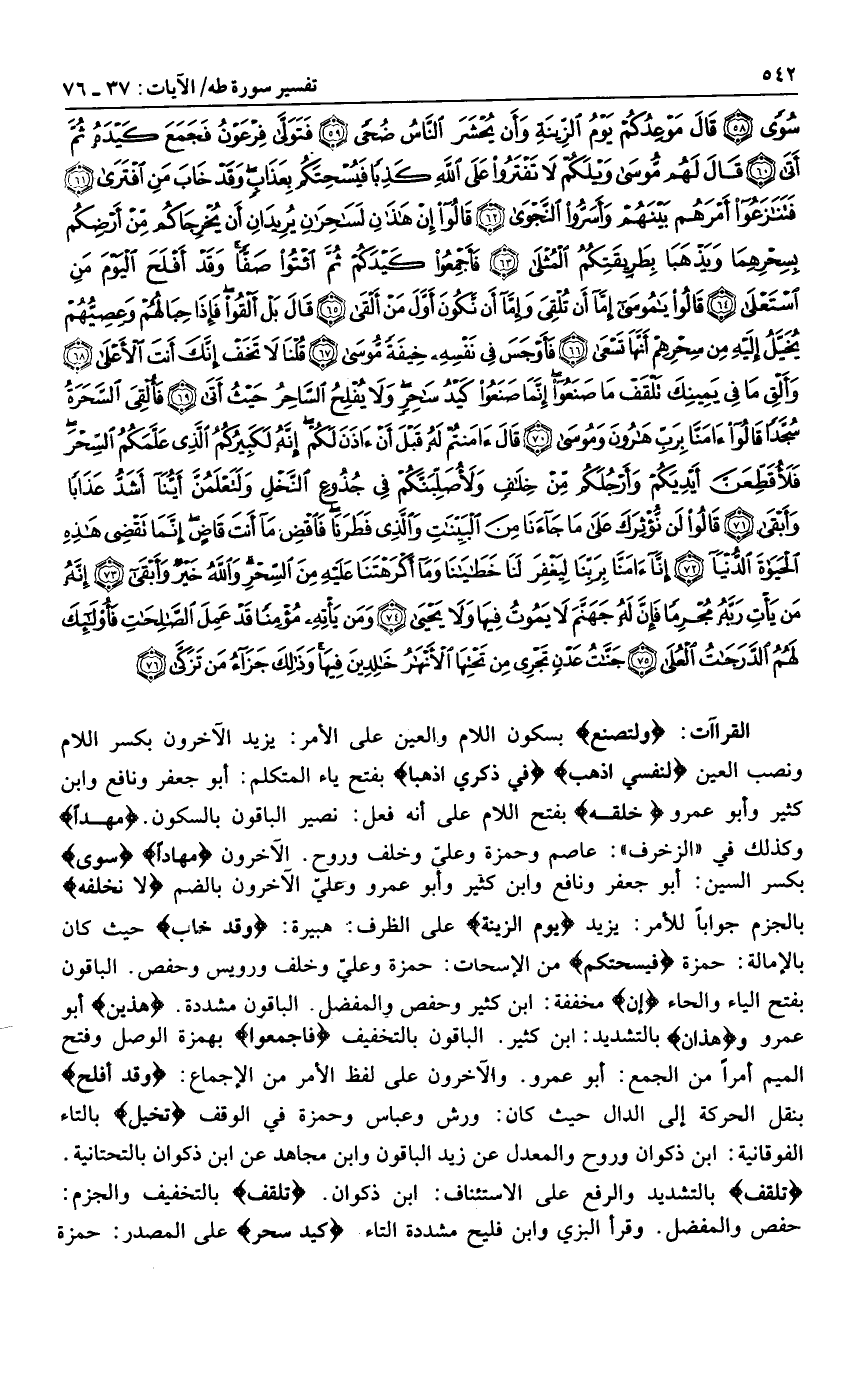 ٥٤٢
تفسير سورة طه/ الآيات: ٣٧ ـ ٧٦
سُوًى ٥٨ قَالَ مَوْعِدُكُمْ يَوْمُ الزِّينَةِ وَأَن يُحْشَرَ النَّاسُ ضُحًى ٥٩ فَتَوَلَّى فِرْعَوْنُ فَجَمَعَ كَيْدَهُ ثُمَّ
أَتَى ٦٠ قَالَ لَهُم مُّوسَى وَيْلَكُمْ لَا تَفْتَرُوا عَلَى اللَّهِ كَذِبًا فَيُسْحِتَكُم بِعَذَابٍ وَقَدْ خَابَ مَنِ افْتَرَى ٦١
فَتَنَازَعُوا أَمْرَهُم بَيْنَهُمْ وَأَسَرُّوا النَّجْوَى ٦٢ قَالُوا إِنْ هَذَانِ لَسَاحِرَانِ يُرِيدَانِ أَن يُخْرِجَاكُم مِّنْ أَرْضِكُم
بِسِحْرِهِمَا وَيَذْهَبَا بِطَرِيقَتِكُمُ الْمُثْلَى ٦٣ فَأَجْمِعُوا كَيْدَكُمْ ثُمَّ ائْتُوا صَفًّا وَقَدْ أَفْلَحَ الْيَوْمَ مَنِ
اسْتَعْلَى ٦٤ قَالُوا يَامُوسَى إِمَّا أَن تُلْقِيَ وَإِمَّا أَن نَّكُونَ أَوَّلَ مَنْ أَلْقَى ٦٥ قَالَ بَلْ أَلْقُوا فَإِذَا حِبَالُهُمْ وَعِصِيُّهُمْ
يُخَيَّلُ إِلَيْهِ مِن سِحْرِهِمْ أَنَّهَا تَسْعَى ٦٦ فَأَوْجَسَ فِي نَفْسِهِ خِيفَةً مُّوسَى ٦٧ قُلْنَا لَا تَخَفْ إِنَّكَ أَنتَ الْأَعْلَى ٦٨
وَأَلْقِ مَا فِي يَمِينِكَ تَلْقَفْ مَا صَنَعُوا إِنَّمَا صَنَعُوا كَيْدُ سَاحِرٍ وَلَا يُفْلِحُ السَّاحِرُ حَيْثُ أَتَى ٦٩ فَأُلْقِيَ السَّحَرَةُ
سُجَّدًا قَالُوا ءَامَنَّا بِرَبِّ هَارُونَ وَمُوسَى ٧٠ قَالَ ءَامَنتُمْ لَهُ قَبْلَ أَنْ ءَاذَنَ لَكُمْ إِنَّهُ لَكَبِيرُكُمُ الَّذِي عَلَّمَكُمُ السِّحْرَ
فَلَأُقَطِّعَنَّ أَيْدِيَكُمْ وَأَرْجُلَكُم مِّنْ خِلَافٍ وَلَأُصَلِّبَنَّكُمْ فِي جُذُوعِ النَّخْلِ وَلَتَعْلَمُنَّ أَيُّنَا أَشَدُّ عَذَابًا
وَأَبْقَى ٧١ قَالُوا لَن نُّؤْثِرَكَ عَلَى مَا جَاءَنَا مِنَ الْبَيِّنَاتِ وَالَّذِي فَطَرَنَا فَاقْضِ مَا أَنتَ قَاضٍ إِنَّمَا تَقْضِي هَذِهِ
الْحَيَوةَ الدُّنْيَا ٧٢ إِنَّا ءَامَنَّا بِرَبِّنَا لِيَغْفِرَ لَنَا خَطَايَانَا وَمَا أَكْرَهْتَنَا عَلَيْهِ مِنَ السِّحْرِ وَاللَّهُ خَيْرٌ وَأَبْقَى ٧٣ إِنَّهُ
مَن يَأْتِ رَبَّهُ مُجْرِمًا فَإِنَّ لَهُ جَهَنَّمَ لَا يَمُوتُ فِيهَا وَلَا يَحْيَى ٧٤ وَمَن يَأْتِهِ مُؤْمِنًا قَدْ عَمِلَ الصَّالِحَاتِ فَأُولَئِكَ
لَهُمُ الدَّرَجَاتُ الْعُلَى ٧٥ جَنَّاتُ عَدْنٍ تَجْرِي مِن تَحْتِهَا الْأَنْهَارُ خَالِدِينَ فِيهَا وَذَلِكَ جَزَاءُ مَن تَزَكَّى ٧٦
القراآت: ﴿ولتصنع﴾ بسكون اللام والعين على الأمر: يزيد الآخرون بكسر اللام
ونصب العين ﴿لنفسي اذهب﴾ ﴿في ذكري اذهبا﴾ بفتح ياء المتكلم: أبو جعفر ونافع وابن
كثير وأبو عمرو ﴿خلقه﴾ بفتح اللام على أنه فعل: نصير الباقون بالسكون. ﴿مهداً﴾
وكذلك في «الزخرف»: عاصم وحمزة وعليّ وخلف وروح. الآخرون ﴿مهاداً﴾ ﴿سوى﴾
بكسر السين: أبو جعفر ونافع وابن كثير وأبو عمرو وعليّ الآخرون بالضم ﴿لا نخلفه﴾
بالجزم جواباً للأمر: يزيد ﴿يوم الزينة﴾ على الظرف: هبيرة: ﴿وقد خاب﴾ حيث كان
بالإمالة: حمزة ﴿فيسحتكم﴾ من الإسحات: حمزة وعليّ وخلف ورويس وحفص. الباقون
بفتح الياء والحاء ﴿إن﴾ مخففة: ابن كثير وحفص والمفضل. الباقون مشددة. ﴿هذين﴾ أبو
عمرو و﴿هذان﴾ بالتشديد: ابن كثير. الباقون بالتخفيف ﴿فاجمعوا﴾ بهمزة الوصل وفتح
الميم أمراً من الجمع: أبو عمرو. والآخرون على لفظ الأمر من الإجماع: ﴿وقد أفلح﴾
بنقل الحركة إلى الدال حيث كان: ورش وعباس وحمزة في الوقف ﴿تخيل﴾ بالتاء
الفوقانية: ابن ذكوان وروح والمعدل عن زيد الباقون وابن مجاهد عن ابن ذكوان بالتحتانية.
﴿تلقف﴾ بالتشديد والرفع على الاستئناف: ابن ذكوان. ﴿تلقف﴾ بالتخفيف والجزم:
حفص والمفضل. وقرأ البزي وابن فليح مشددة التاء ﴿كيد سحر﴾ على المصدر: حمزة